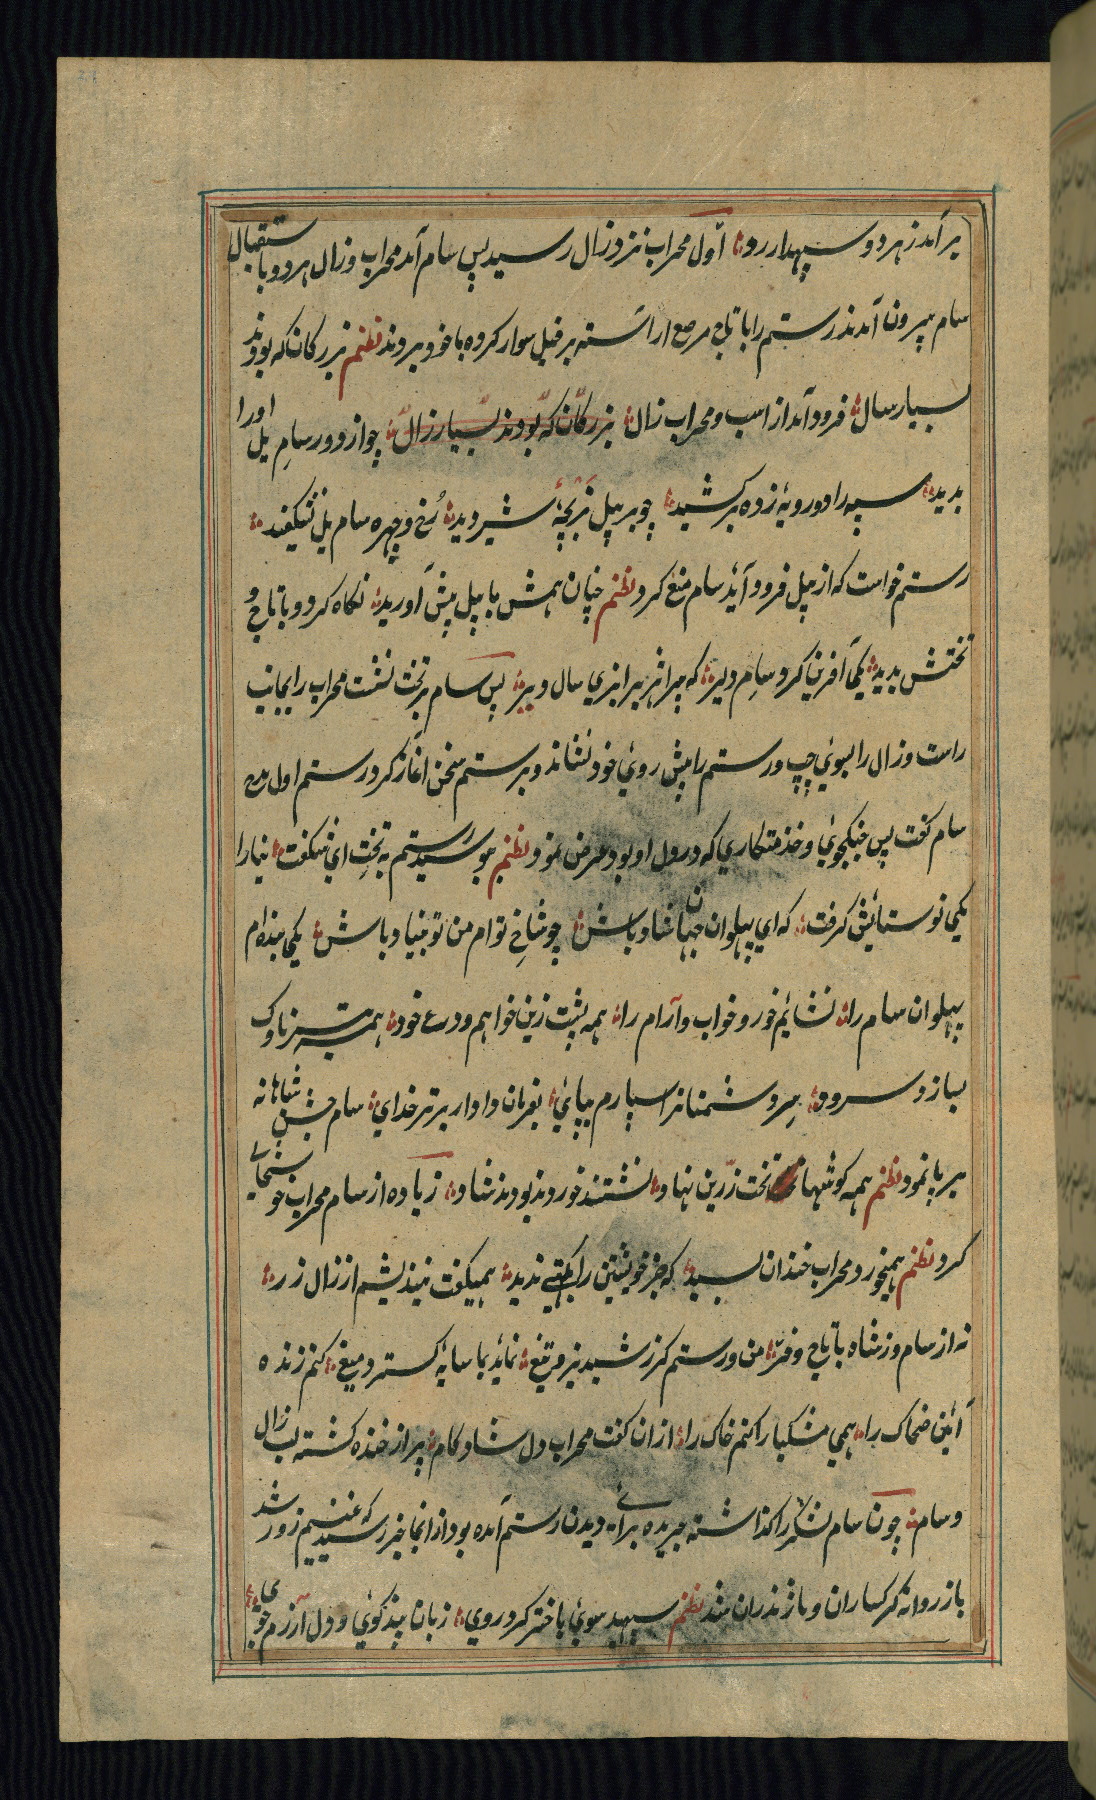 برآمد ز هر دو سپهدار رو اول محراب نزد زال رسید پس سام آمد محراب و زال هر دو باستقبال
سام بیرون آمدند رستم را با تاج مرصع اراسته بر فیل سوار کرده با خود بردند نظم بزرکان که بودند
بسیار سال فرود آمد از اسب و محراب زال بزرکان که بودند بسیار زال چو از دور سام یل اورا
بدید سپه را دو رویه زده بر کشید چو بر پیل بر بچهٔ شیر دید رخ و چهره سام یل بشکفید
رستم خواست که از پیل فرود آید سام منع کرد نظم چنان همش با پیل پیش آورید نکاه کرد و با تاج و
تختش بدید یکی آفرین کرد سام دلیر که پیراهژبرا بزی سال دیر پس سام بر تخت نشست محراب را بجانب
راست و زال را بسوی چپ و رستم را پیش روی خود نشاند و برستم سخن اغاز کرد رستم اول مدح
سام کفت پس جنکجوئی و خدمتکاری که در دل او بود عرض نمود نظم ببوسید رستم به تخت ای شکفت نیارا
یکی نو ستایش کرفت که ای پهلوان جهان شاد باش چو شاخ توام من تو بنیاد باش یکی بنده ام
پهلوان سام را نشایم خور و خواب و آرام را همه پشت زین خواهم و درع خود همه تیر ناوک
بسازد سرود سر دشمنانرا سپارم بپای بفرمان دادار برتر خدای سام جشن شاهانه
برپا نمود نظم همه کوشها تخت زرین نهاد نشستند خوردند بودند شاد زیاده از سام محراب خوشحالی
کرد نظم همیخورد محراب خندان نبید که جز خویشتن را بکیتی ندید همیکفت نیندیشم از زال زر
نه از سام و ز شاه با تاج و فر من و رستم کز رشید نیز و تیغ نماید بما سایه کسترد میغ کنم زنده
آئین ضحاک را همی مشکبارا کنم خاک را ازان کفت محراب دل شاد کام پر از خنده کشته لب زال
و سام چون سام لشکر را کذاشته جریده برای دیدن رستم آمده بود از انجا خبر رسید که غنیم زور شد
باز روانه کرکساران و مازندران شد نظم سپهبد سوی باختر کرد روی زبان پند کوی و دل آزرم جوی